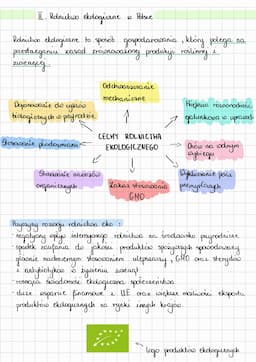 II. Rolnictwo ekologiczne w Polsce
Rolnictwo ekologiczne to sposób gospodarowania, który polega na
przestrzeganiu zasad zrównoważonej produkcji roślinnej i
zwierzęcej.
Odchwaszczanie
mechaniczne
biologicznych w przyrodzie
Większa różnorodność
gatunkowa w uprawach
Stosowanie płodozmianu
CECHY ROLNICTWA
EKOLOGICZNEGO
Chów na wolnym
wybiegu
Stosowanie nawozów
organicznych
Zakaz stosowania
GMO
przemysłowych
Przyczyny rozwoju rolnictwa eko:
- negatywny wpływ intensywnego rolnictwa na środowisko przyrodnicze
- spadek zaufania do jakości produktów spożywczych spowodowany
głównie nadmiernym stosowaniem ulepszaczy, GMO oraz sterydów
i antybiotyków w żywieniu zwierząt
- rosnąca świadomość ekologiczna społeczeństwa
- duże wsparcie finansowe z UE oraz większe możliwości eksportu
produktów ekologicznych na rynki innych krajów.
logo produktów ekologicznych